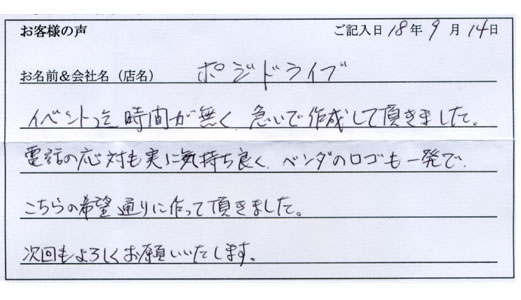 お客様の声 ご記入日 18年 9月 14日
お名前&会社名（店名） ポジドライブ
イベント迄時間が無く、急いで作成して頂きました。
電話の応対も実に気持ち良く、ベンダのロゴも一発で、
こちらの希望通りに作って頂きました。
次回もよろしくお願いいたします。